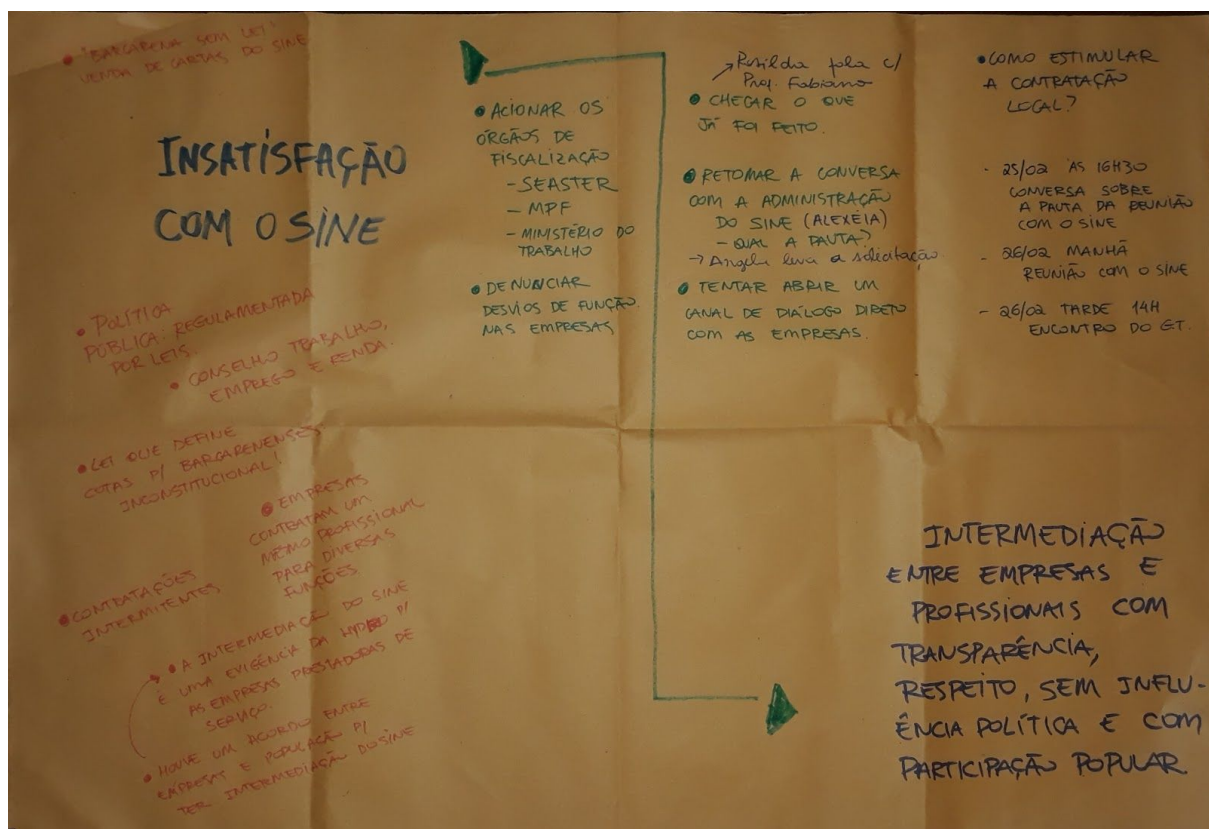 • "BARCARENA SEM LEI"
VENDA DE CARTAS DO SINE
INSATISFAÇÃO
COM O SINE
• POLÍTICA
PÚBLICA: REGULAMENTADA
POR LEIS.
• CONSELHO TRABALHO,
EMPREGO E RENDA.
• LEI QUE DEFINE
COTAS P/ BARCARENENSES
INCONSTITUCIONAL!
• EMPRESAS
CONTRATAM UM
MESMO PROFISSIONAL
PARA DIVERSAS
FUNÇÕES.
• CONTRATAÇÕES
INTERMITENTES
• A INTERMEDIAÇÃO DO SINE
É UMA EXIGÊNCIA DA HYDRO P/
AS EMPRESAS PRESTADORAS DE
SERVIÇO.
• HOUVE UM ACORDO ENTRE
EMPRESAS E POPULAÇÃO P/
TER INTERMEDIAÇÃO DO SINE
• ACIONAR OS
ÓRGÃOS DE
FISCALIZAÇÃO
- SEASTER
- MPF
- MINISTÉRIO DO
TRABALHO
• DENUNCIAR
DESVIOS DE FUNÇÃO
NAS EMPRESAS
→ fala c/
Prof. Fabiano
• CHECAR O QUE
JÁ FOI FEITO.
• RETOMAR A CONVERSA
COM A ADMINISTRAÇÃO
DO SINE (ALEXÉIA)
- QUAL A PAUTA?
→ Angela leva a solicitação
• TENTAR ABRIR UM
CANAL DE DIÁLOGO DIRETO
COM AS EMPRESAS.
• COMO ESTIMULAR
A CONTRATAÇÃO
LOCAL?
- 25/02 ÀS 16H30
CONVERSA SOBRE
A PAUTA DA REUNIÃO
COM O SINE
- 26/02 MANHÃ
REUNIÃO COM O SINE
- 26/02 TARDE 14H
ENCONTRO DO GT.
INTERMEDIAÇÃO
ENTRE EMPRESAS E
PROFISSIONAIS COM
TRANSPARÊNCIA,
RESPEITO, SEM INFLU-
ÊNCIA POLÍTICA E COM
PARTICIPAÇÃO POPULAR